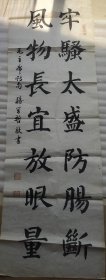 牢騷太盛防腸斷
風物長宜放眼量
毛主席詩句